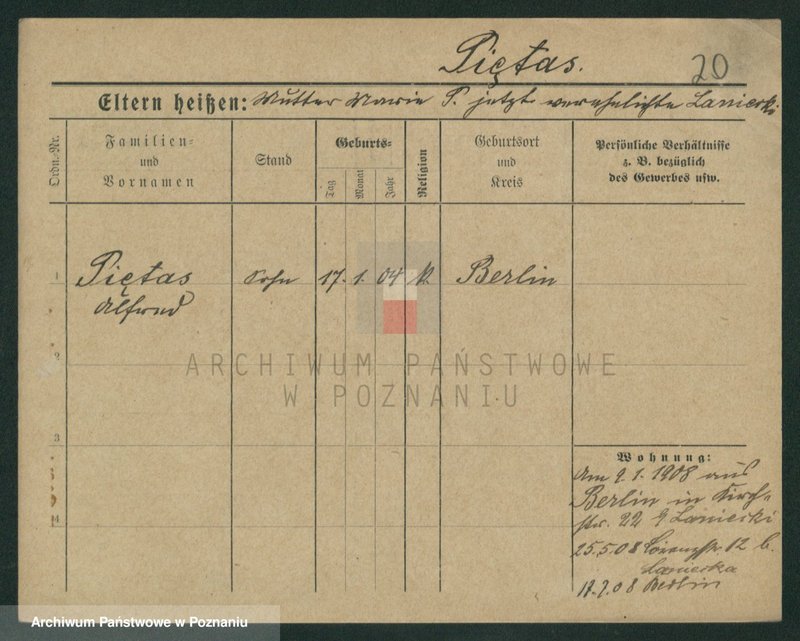 Piętas.
20
Eltern heißen: Mutter Marie P. jetzt verehelichte Laniecki
Ordn.-Nr.
Familien-
und
Vornamen
Stand
Geburts-
Tag
Monat
Jahr
Religion
Geburtsort
und
Kreis
Persönliche Verhältnisse
z. B. bezüglich
des Gewerbes usw.
1
Piętas
Alfred
Sohn
17. 1. 04 k. Berlin
2
ARCHIWUM PAŃSTWOWE
W POZNANIU
3
4
Wohnung:
Am 9. 1. 1908 aus
Berlin in Kirch-
str. 22 Laniecki
25.5.08 12 b.
Laniecka
17.7.08 Berlin
Archiwum Państwowe w Poznaniu